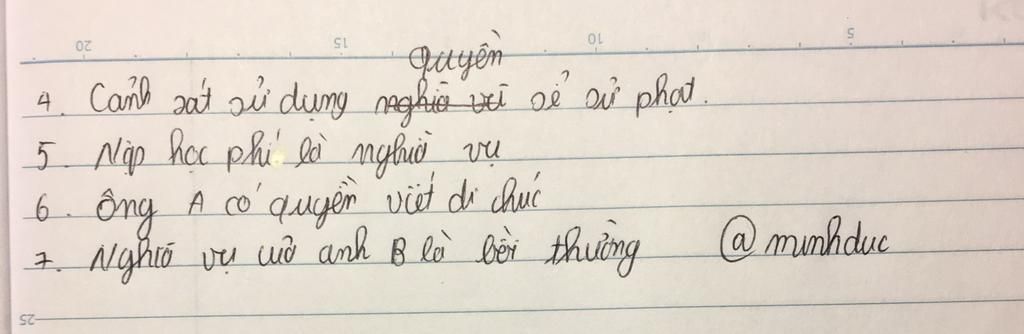 20 15 10 5
quyền
4. Cảnh sát sử dụng nghĩa vụ để xử phạt.
5. Nộp học phí là nghĩa vụ
6. Ông A có quyền viết di chúc
7. Nghĩa vụ của anh B là bồi thường @minhduc
25